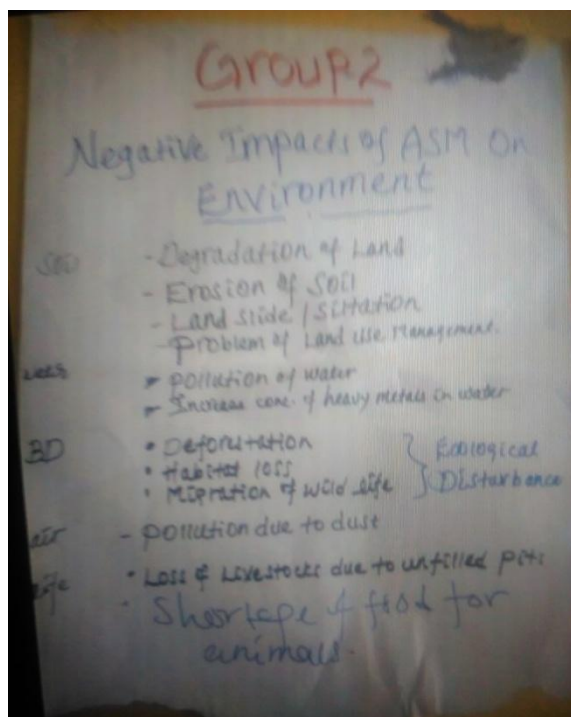 Group 2
Negative Impacts of ASM On
Environment
Soil - Degradation of Land
- Erosion of Soil
- Land slide / Siltation
- Problem of Land use Management.
- Pollution of water
- Increase conc. of heavy metals in water
BD • Deforestation } Ecological
• Habitat loss
• Migration of wild life } Disturbance
air - Pollution due to dust
life • Loss of Livestocks due to unfilled pits
• Shortage of food for
animals.